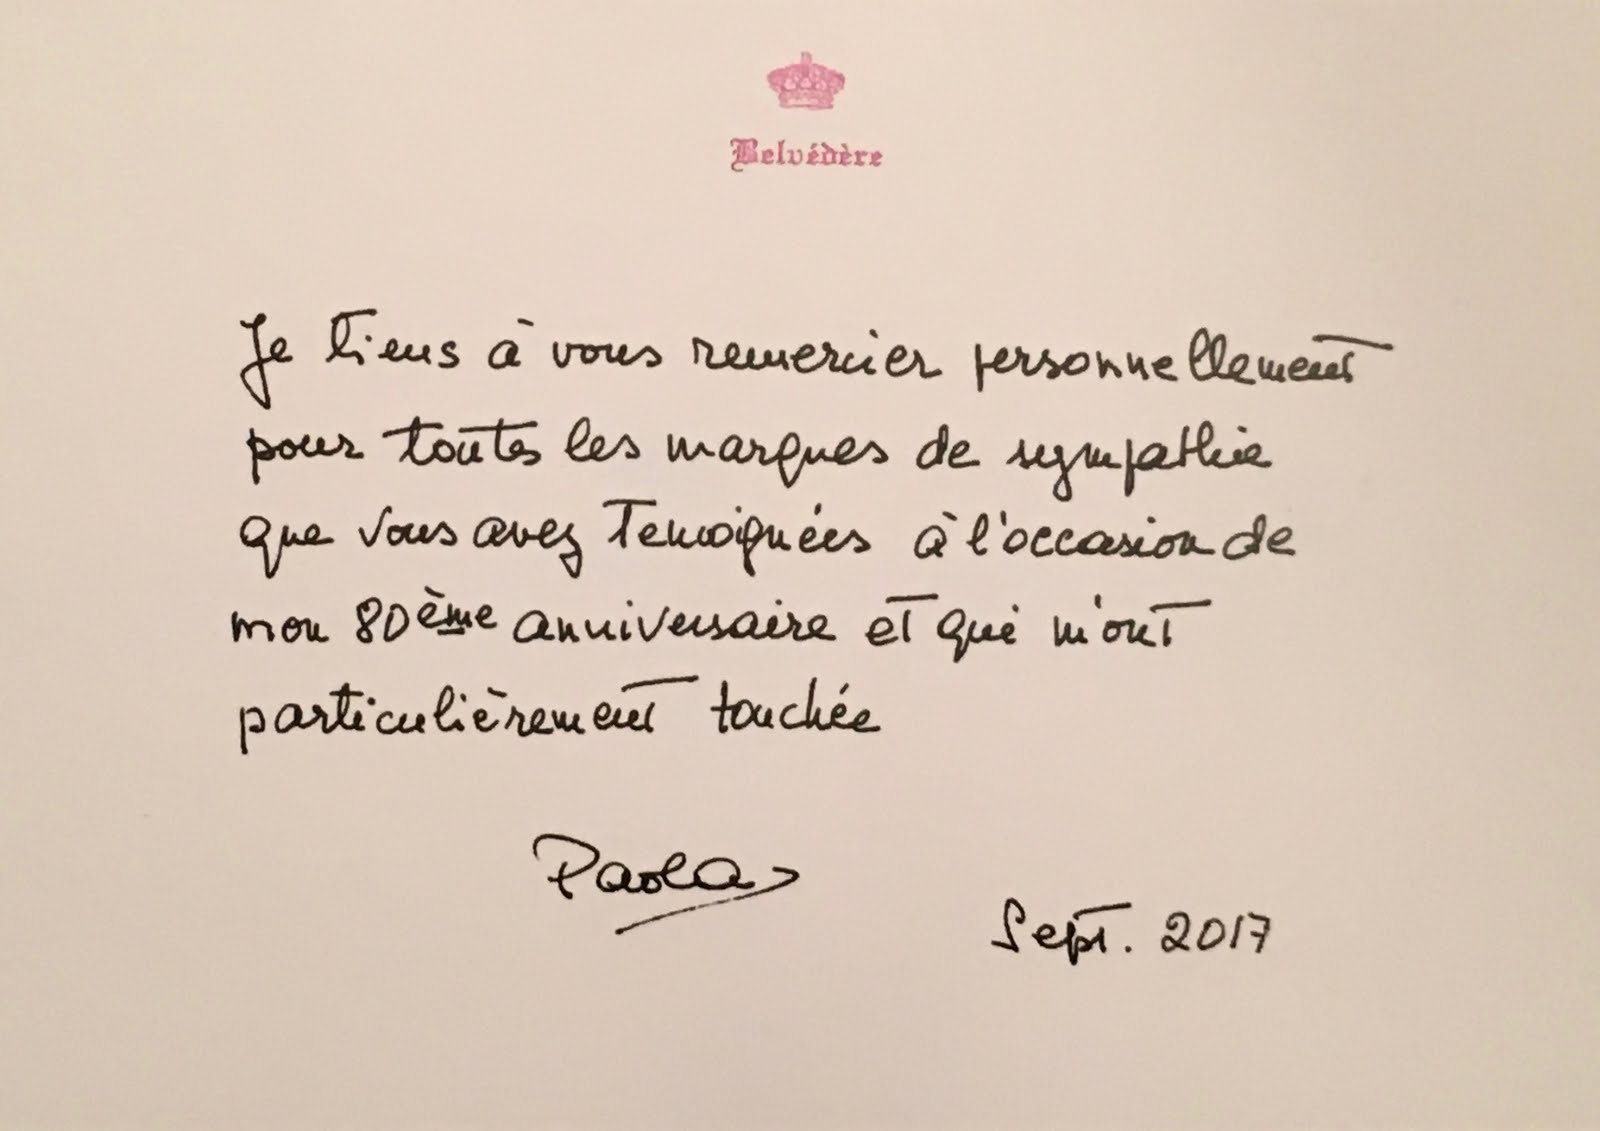 Belvédère
Je tiens à vous remercier personnellement
pour toutes les marques de sympathie
que vous avez temoignées à l'occasion de
mon 80ème anniversaire et qui m'ont
particulièrement touchée
Paola
Sept. 2017